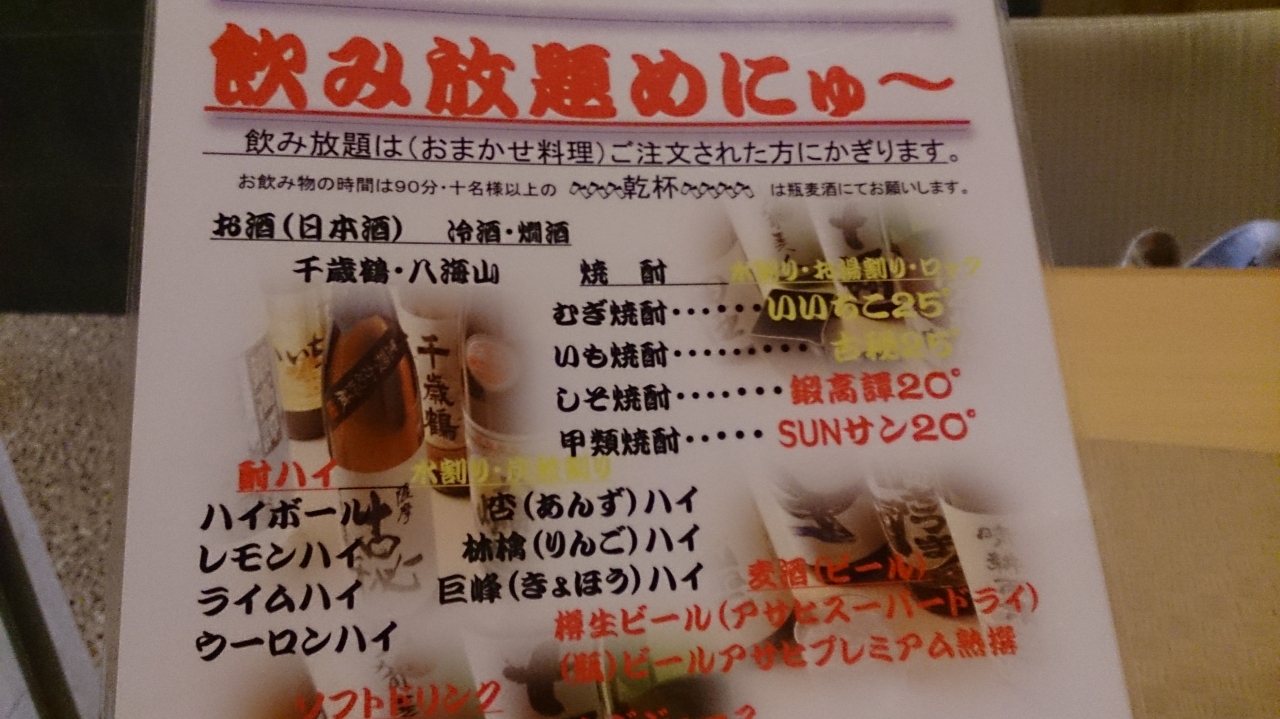 飲み放題めにゅ〜
飲み放題は(おまかせ料理)ご注文された方にかぎります。
お飲み物の時間は90分・十名様以上の 乾杯 は瓶麦酒にてお願いします。
お酒(日本酒) 冷酒・燗酒
千歳鶴・八海山
焼 酎 水割り・お湯割り・ロック
むぎ焼酎・・・・・・いいちこ25°
いも焼酎・・・・・・・・・ 25°
しそ焼酎・・・・・・・鍛高譚20°
甲類焼酎・・・・・ SUNサン20°
酎ハイ 水割り・炭酸割り
ハイボール
レモンハイ
ライムハイ
ウーロンハイ
杏(あんず)ハイ
林檎(りんご)ハイ
巨峰(きょほう)ハイ
麦酒(ビール)
樽生ビール(アサヒスーパードライ)
(瓶)ビールアサヒプレミアム熟撰
ソフトドリンク
千歳鶴